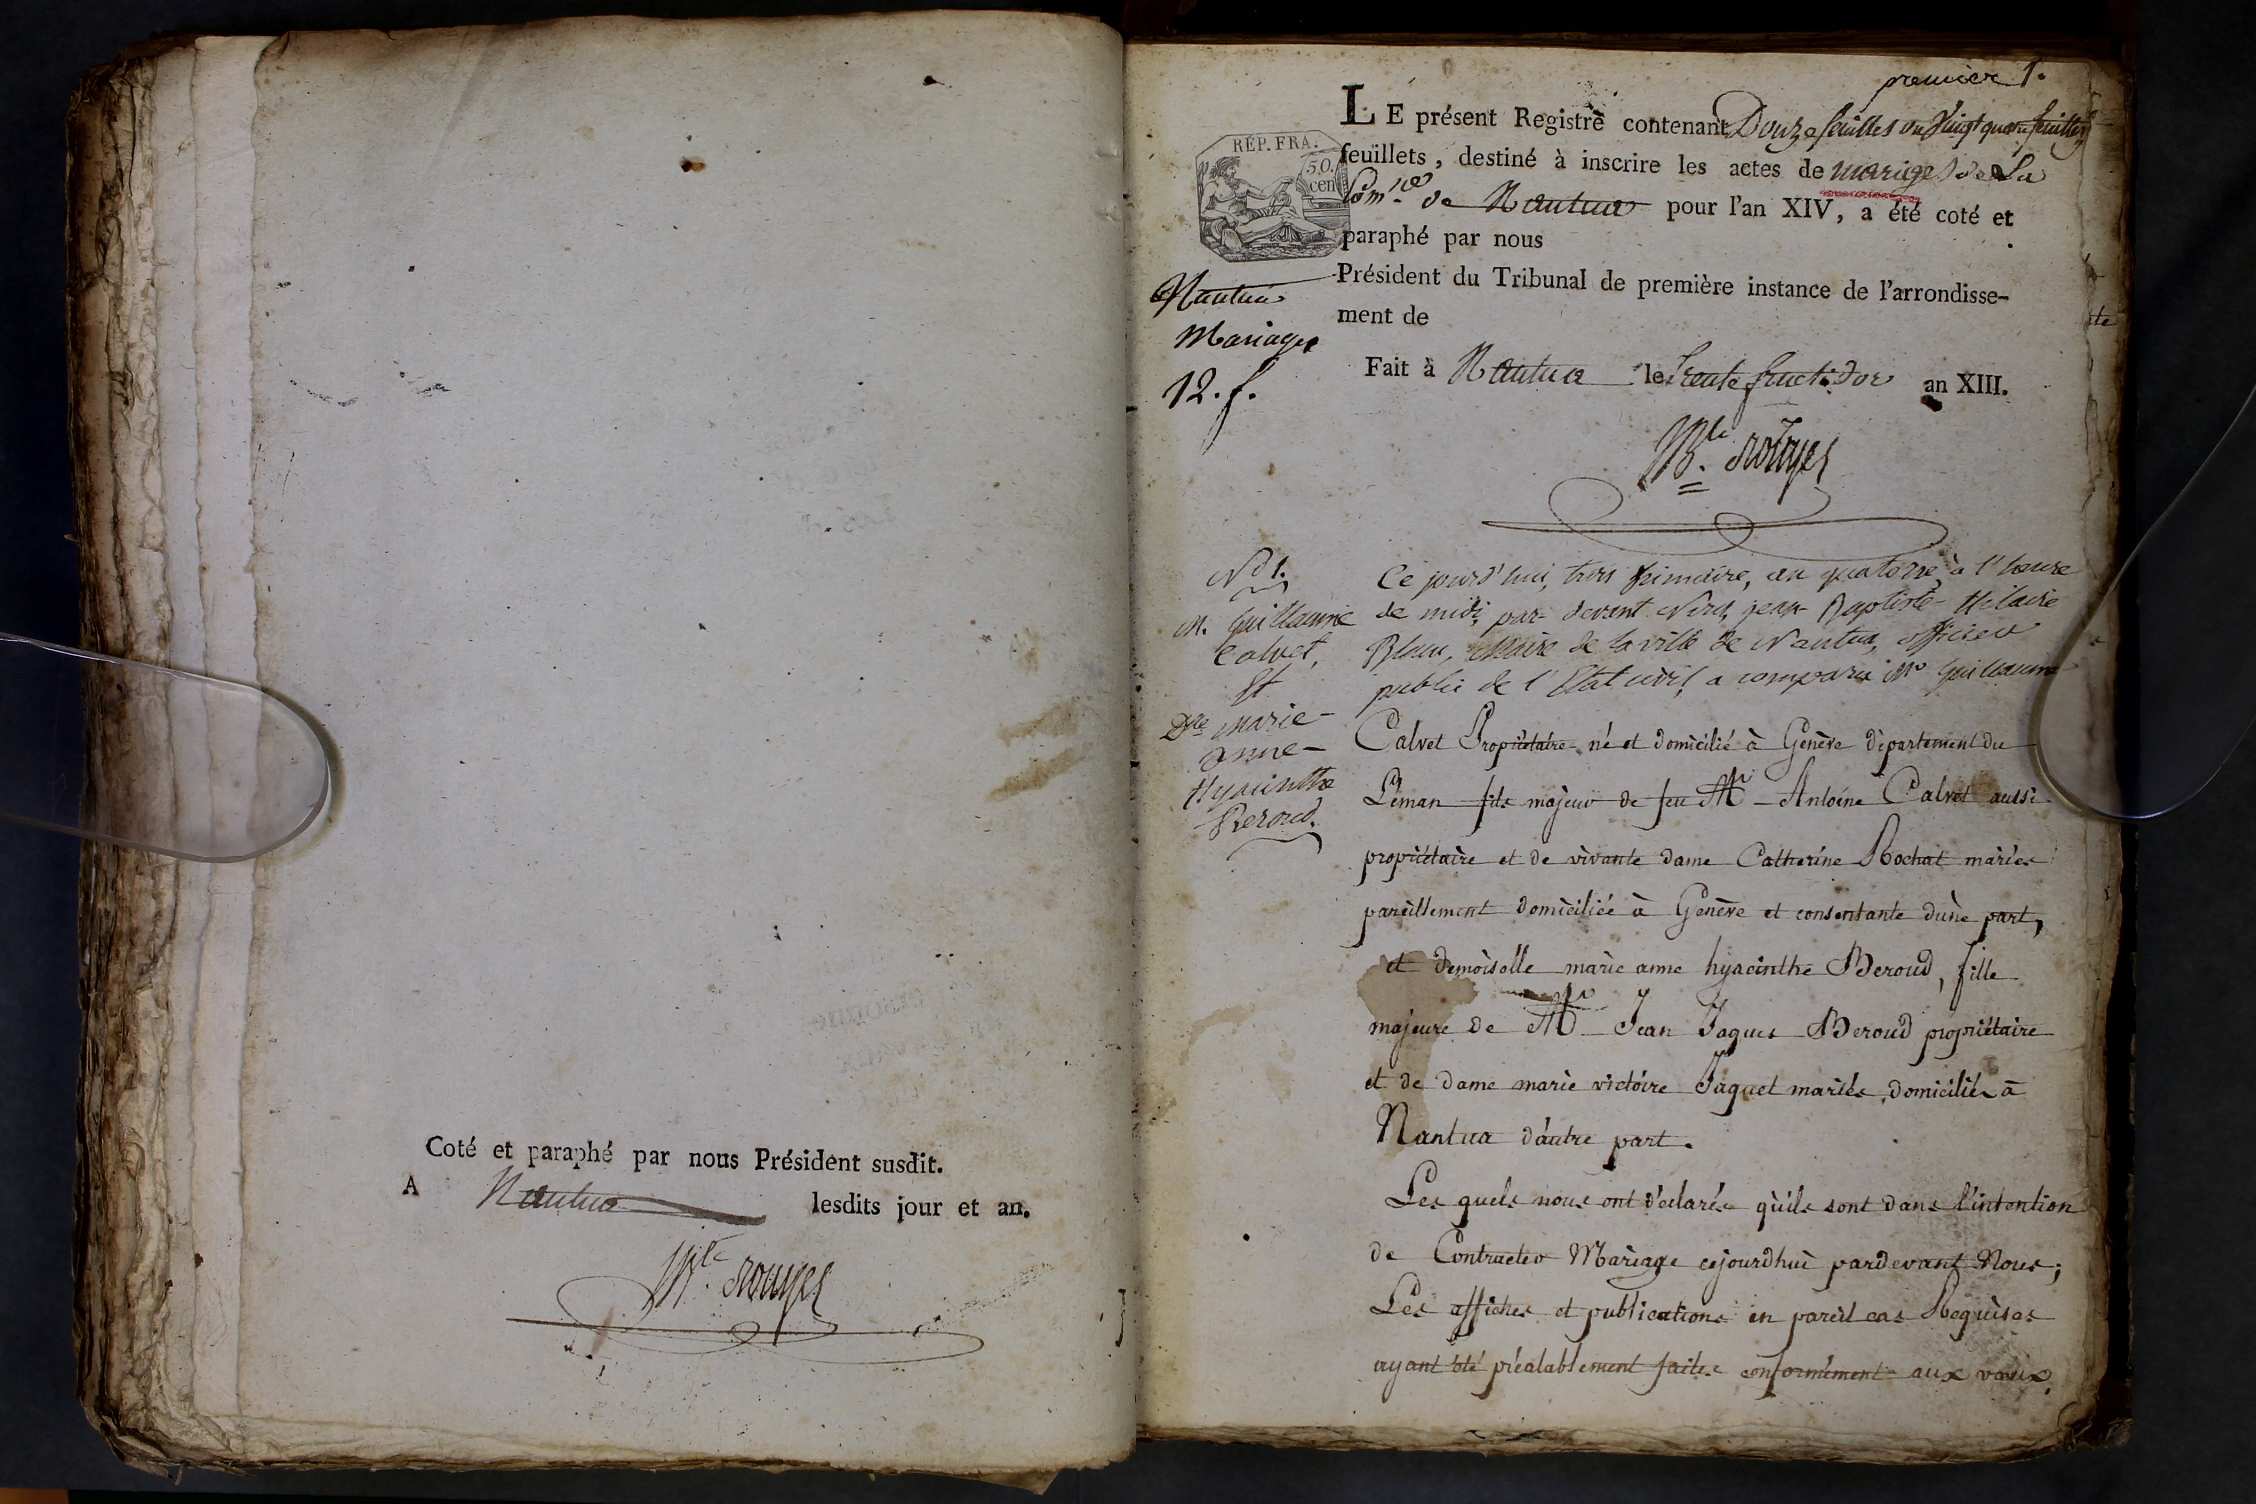 Coté et paraphé par nous Président susdit.
A Nantua lesdits jour et an.
premier 1.
LE présent Registre contenant Douze feuilles ou Vingt quatre feuillets
feuillets, destiné à inscrire les actes de mariages de La
Com.ne de Nantua pour l'an XIV, a été coté et
paraphé par nous
Président du Tribunal de première instance de l'arrondisse-
ment de
Fait à Nantua le trente fructidor an XIII.
RÉP. FRA.
50.
cen
Nantua
Mariages
12. f.
No 1.
M. Guillaume
Calvet,
Et
Dlle marie-
anne-
Hyacinthe
Beroud.
Ce jourd'hui, trois frimaire, an quatorze, à l'heure
de midi, par-devant Nous, jean-Baptiste-Hilaire
Blanc, Maire de la ville de Nantua, officier
public de l'Etat civil, a comparu Mr Guillaume
Calvet Propriétaire né et domicilié à Genève département du
Léman fils majeur de feu Mr Antoine Calvet aussi
propriétaire et de vivante dame Catherine Rochat mariés
pareillement domiciliée à Genève et consentante d'une part,
et demoiselle marie anne hyacinthe Beroud, fille
majeure de Mr Jean Jaques Beroud propriétaire
et de dame marie victoire Jaquet mariés, domiciliés à
Nantua d'autre part.
Les quels nous ont déclarés qu'ils sont dans l'intention
de Contracter Mariage cejourdhui pardevant Nous;
Les affiches et publications en pareil cas Requises
ayant été préalablement faites conformément aux voeux